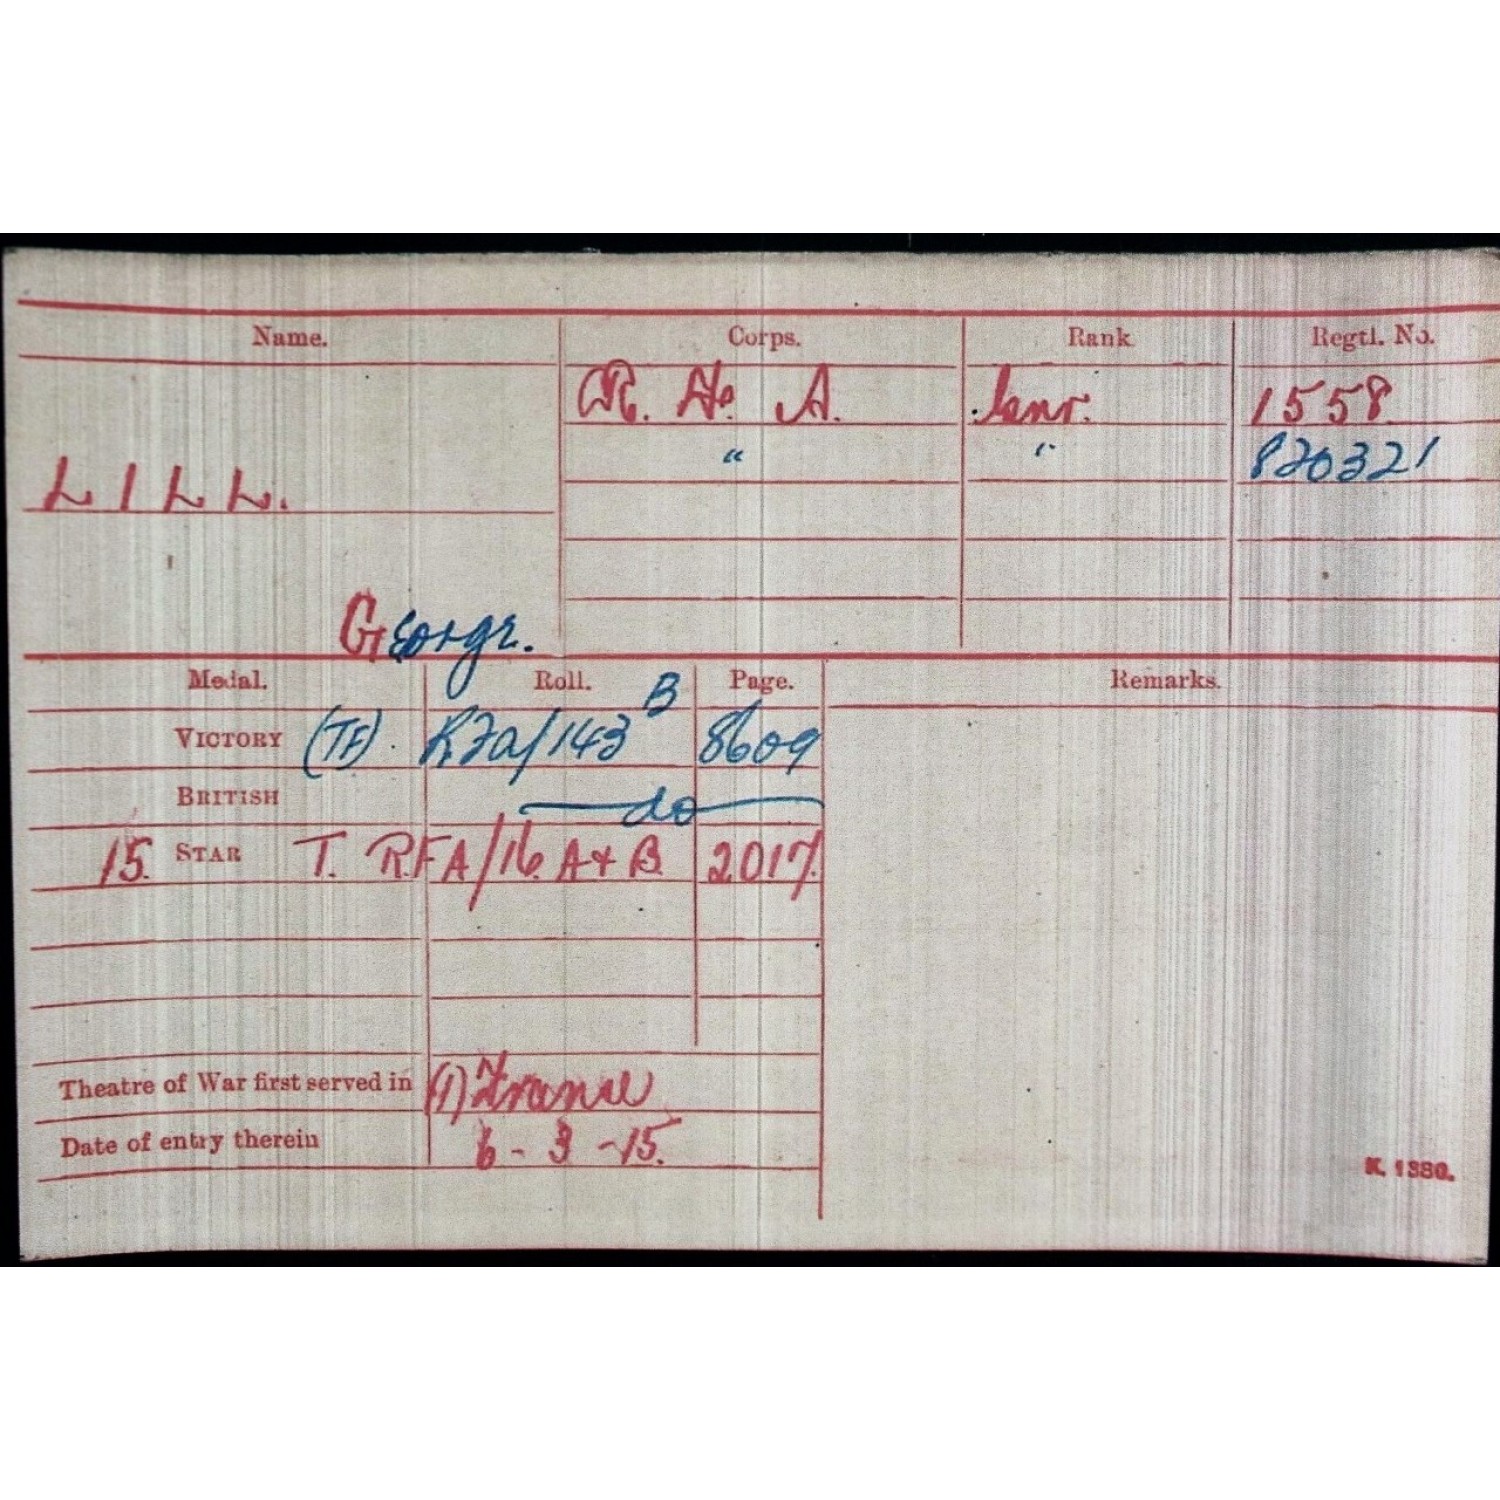 Name. Corps. Rank Regtl. No.
R. Fe. A. Gnr. 1558
" " 820321
LILL.
George.
Medal. Roll. Page. Remarks.
VICTORY (TF). RFA/143 B 8609
BRITISH do
15 STAR T. RFA/16 A+B 2017.
Theatre of War first served in (1) France
Date of entry therein 6 - 3 - 15.
K. 1380.